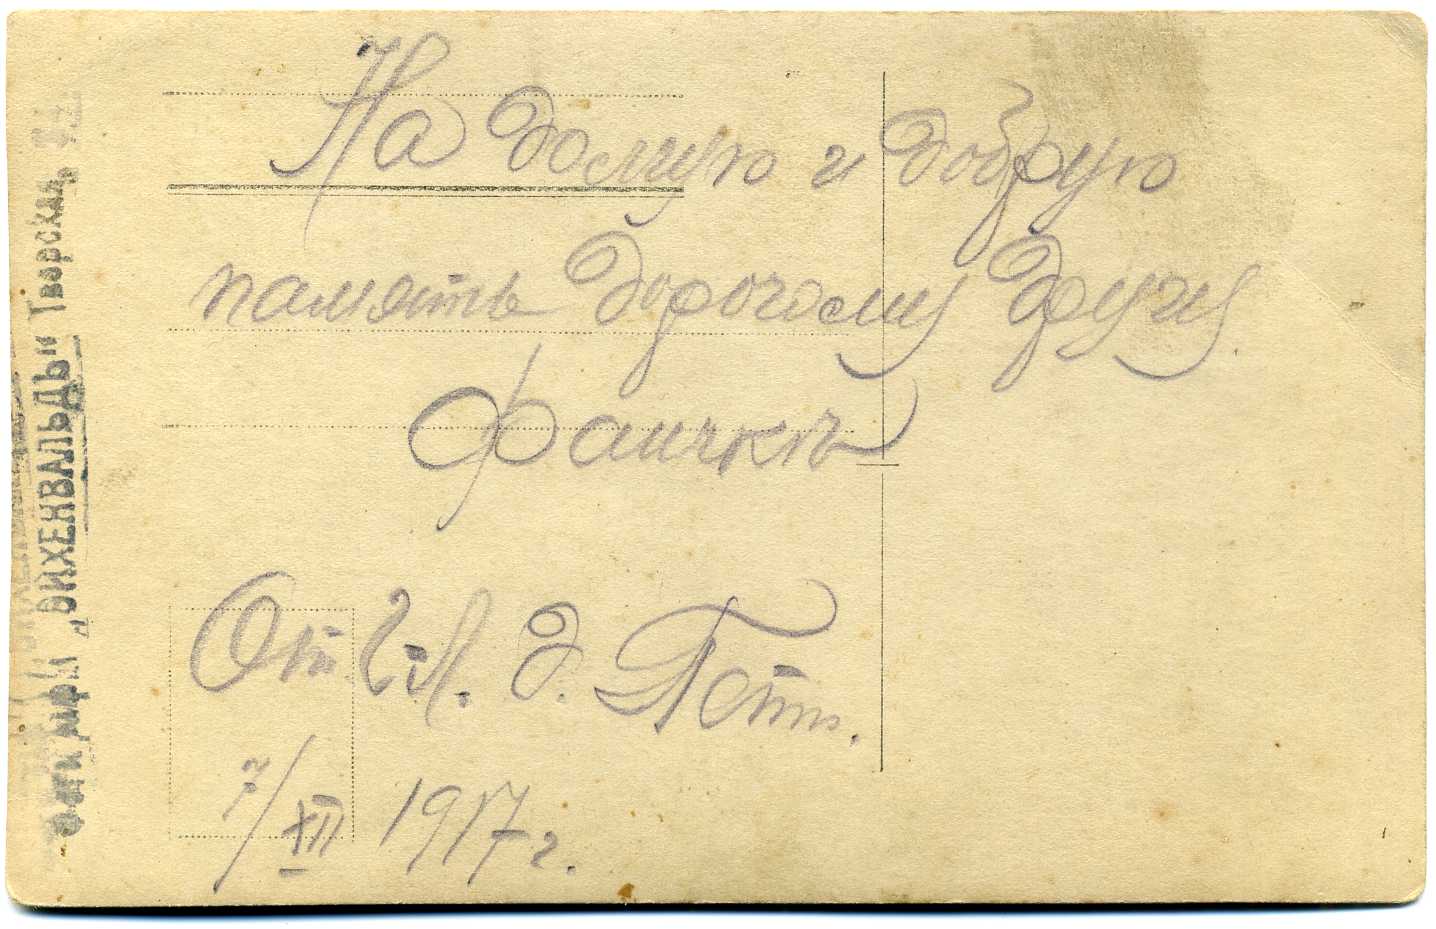 На долгую и добрую
память дорогому другу
Фаничкѣ
Отъ
Э. Гетъ.
7/XII 1917 г.
"ЭЙХЕНВАЛЬДЪ" Тверская,